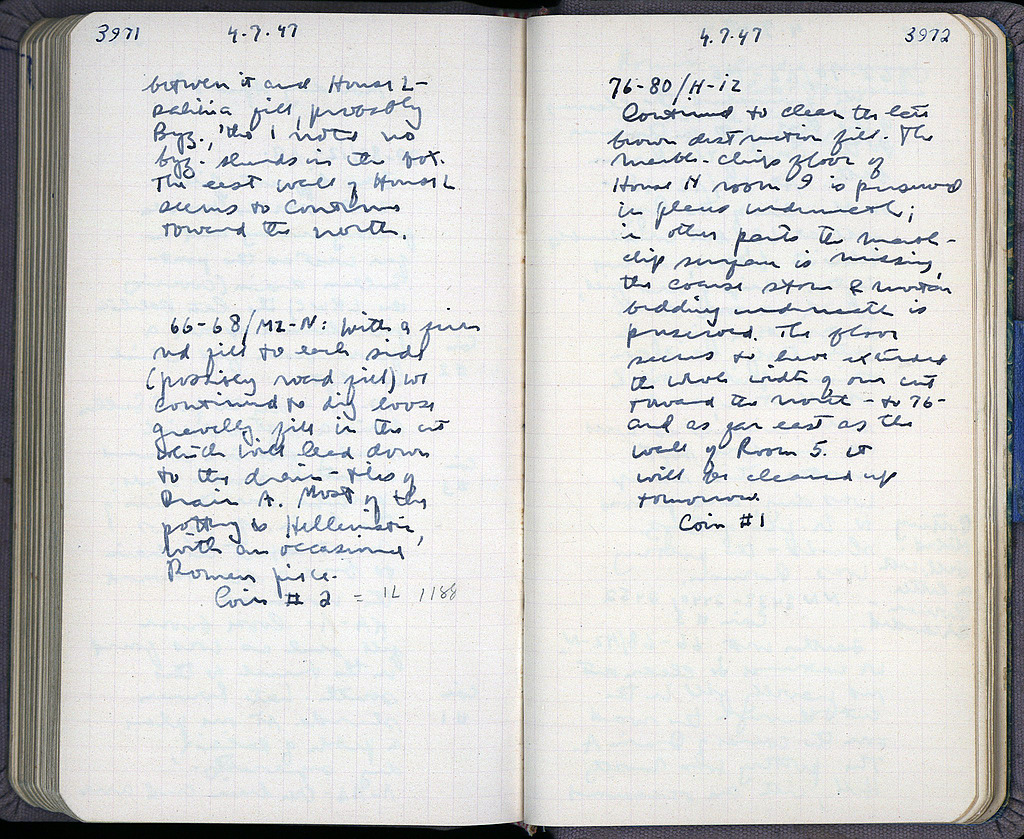 3971
4.7.47
between it and House L-
fill, probably
Byz., tho' I noted no
byz. sherds in the pot.
The east wall of House L
seems to continue
toward the north.
66-68/MZ-N: With a firm
red fill to each side
(possibly road fill) we
continued to dig loose
gravelly fill in the cut
which will lead down
to the drain - this of
Drain A. Most of the
pottery is Hellenistic,
with an occasional
Roman piece.
Coin # 2 = IL 1188
4.7.47
3972
76-80/H-IZ
Continued to clear the late
brown destruction fill. The
marble-chip floor of
House N room 9 is preserved
in places underneath;
in other parts the marble-
chip surface is missing,
the coarse stone & mortar
bedding underneath is
preserved. The floor
seems to have extended
the whole width of our cut
toward the north - to 76-
and as far east as the
wall of Room 5. It
will be cleaned up
tomorrow.
Coin #1